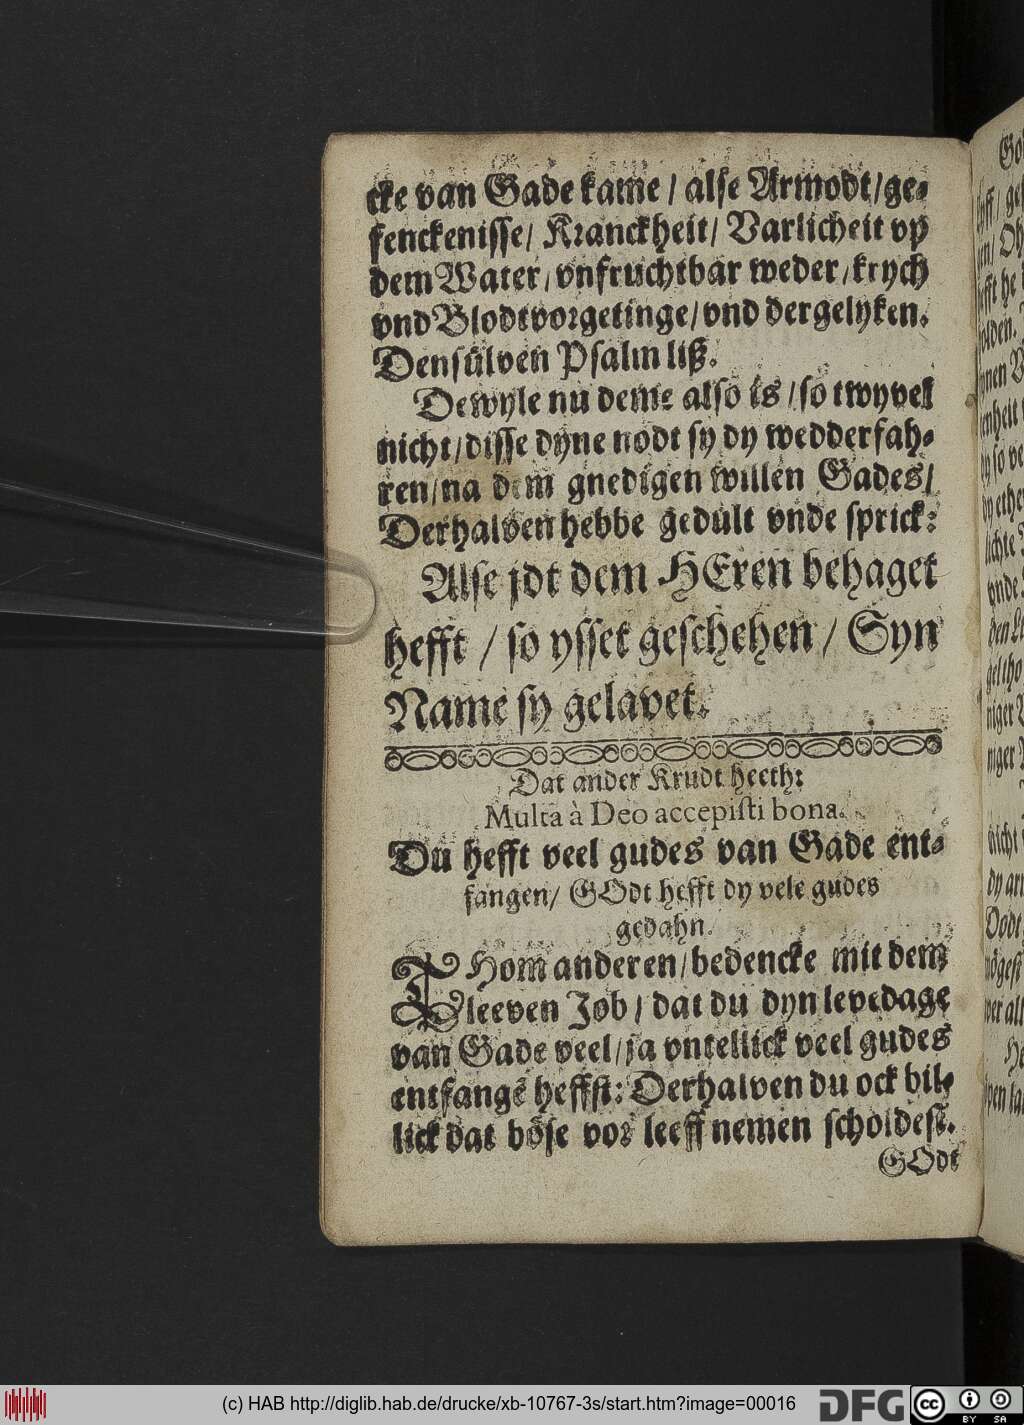 cke van Gade kame / alse Armodt / ge-
fenckenisse / Kranckheit / Varlicheit vp
dem Water / vnfruchtbar weder / krych
vnd Blodtvorgetinge / vnd dergelyken.
Densülven Psalm liß.
Dewyle nu deme also is / so twyvel
nicht / disse dyne nodt sy dy wedderfah-
ren / na dem gnedigen willen Gades /
Derhalven hebbe gedult vnde sprick:
Alse jdt dem HEren behaget
hefft / so ysset geschehen / Syn
Name sy gelavet.
Dat ander Krudt heeth:
Multa à Deo accepisti bona.
Du hefft veel gudes van Gade ent-
fangen / GOdt hefft dy vele gudes
gedahn.
THom anderen / bedencke mit dem
leeven Job / dat du dyn levedage
van Gade veel / ja vntellick veel gudes
entfangē heffst: Derhalven du ock bil-
lick dat böse vor leeff nemen scholdest.
GOdt
(c) HAB http://diglib.hab.de/drucke/xb-10767-3s/start.htm?image=00016
DFG
cc
BY SA